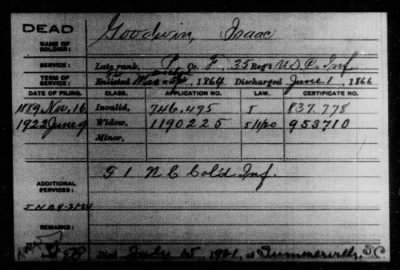 DEAD
NAME OF SOLDIER: Goodwin, Isaac
SERVICE: Late rank, Co. F, 35 Reg't U.S.C. Inf
TERM OF SERVICE: Enlisted 1864 Discharged June 1, 1866
DATE OF FILING. CLASS. APPLICATION NO. LAW. CERTIFICATE NO.
1889 Nov. 16 Invalid, 746.495 837.778
1922 June 9 Widow, 1190225 953710
Minor,
ADDITIONAL SERVICES: F 1 N C Col'd Inf.
REMARKS:
Died July 15 1921, at Summerville, SC